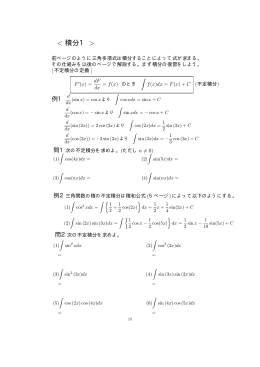 < 積分1 >
前ページのように三角多項式は積分することによって式が求まる。
その仕組みを以後のページで解説する。まず積分の復習をしよう。
[不定積分の定義]
F'(x) = dF/dx = f(x) のとき ∫ f(x)dx = F(x) + C (不定積分)
例1 d/dx (sin x) = cos x より ∫ cos xdx = sin x + C
d/dx (cos x) = − sin x より ∫ sin xdx = − cos x + C
d/dx (sin (2x)) = 2 cos (2x) より ∫ cos (2x)dx = 1/2 sin (2x) + C
d/dx (cos (3x)) = −3 sin (3x) より ∫ sin (3x)dx = −1/3 cos (3x) + C
問1 次の不定積分を求めよ。(ただし n ≠ 0)
(1) ∫ cos(4x)dx = (2) ∫ sin(5x)dx =
(3) ∫ cos(nx)dx = (4) ∫ sin(nx)dx =
例2 三角関数の積の不定積分は積和公式 (5 ページ) によって以下のようにする。
(1) ∫ cos² xdx = ∫ {1/2 + 1/2 cos(2x)} dx = 1/2 x + 1/4 sin(2x) + C
(2) ∫ sin (2x) sin (3x)dx = ∫ {1/2 cos x − 1/2 cos(5x)} dx = 1/2 sin x − 1/10 sin(5x) + C
問2 次の不定積分を求めよ。
(1) ∫ sin² xdx (2) ∫ cos² (2x)dx
= =
(3) ∫ sin² (3x)dx (4) ∫ sin (3x) sin (2x)dx
= =
(5) ∫ cos (2x) cos (4x)dx (6) ∫ sin (4x) cos (5x)dx
= =